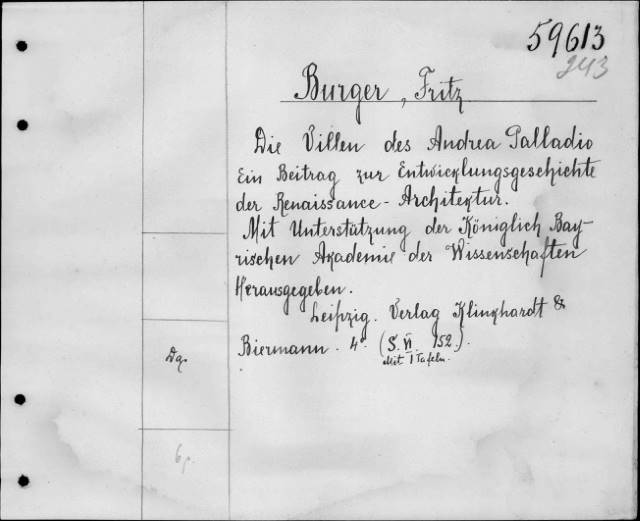 59613
243
Burger, Fritz
Die Villen des Andrea Palladio
Ein Beitrag zur Entwicklungsgeschichte
der Renaissance-Architektur.
Mit Unterstützung der Königlich Bay-
rischen Akademie der Wissenschaften
Herausgegeben.
Leipzig. Verlag Klinghardt &
Biermann. 4° (S. VI. 152.).
Mit 1 Tafeln.